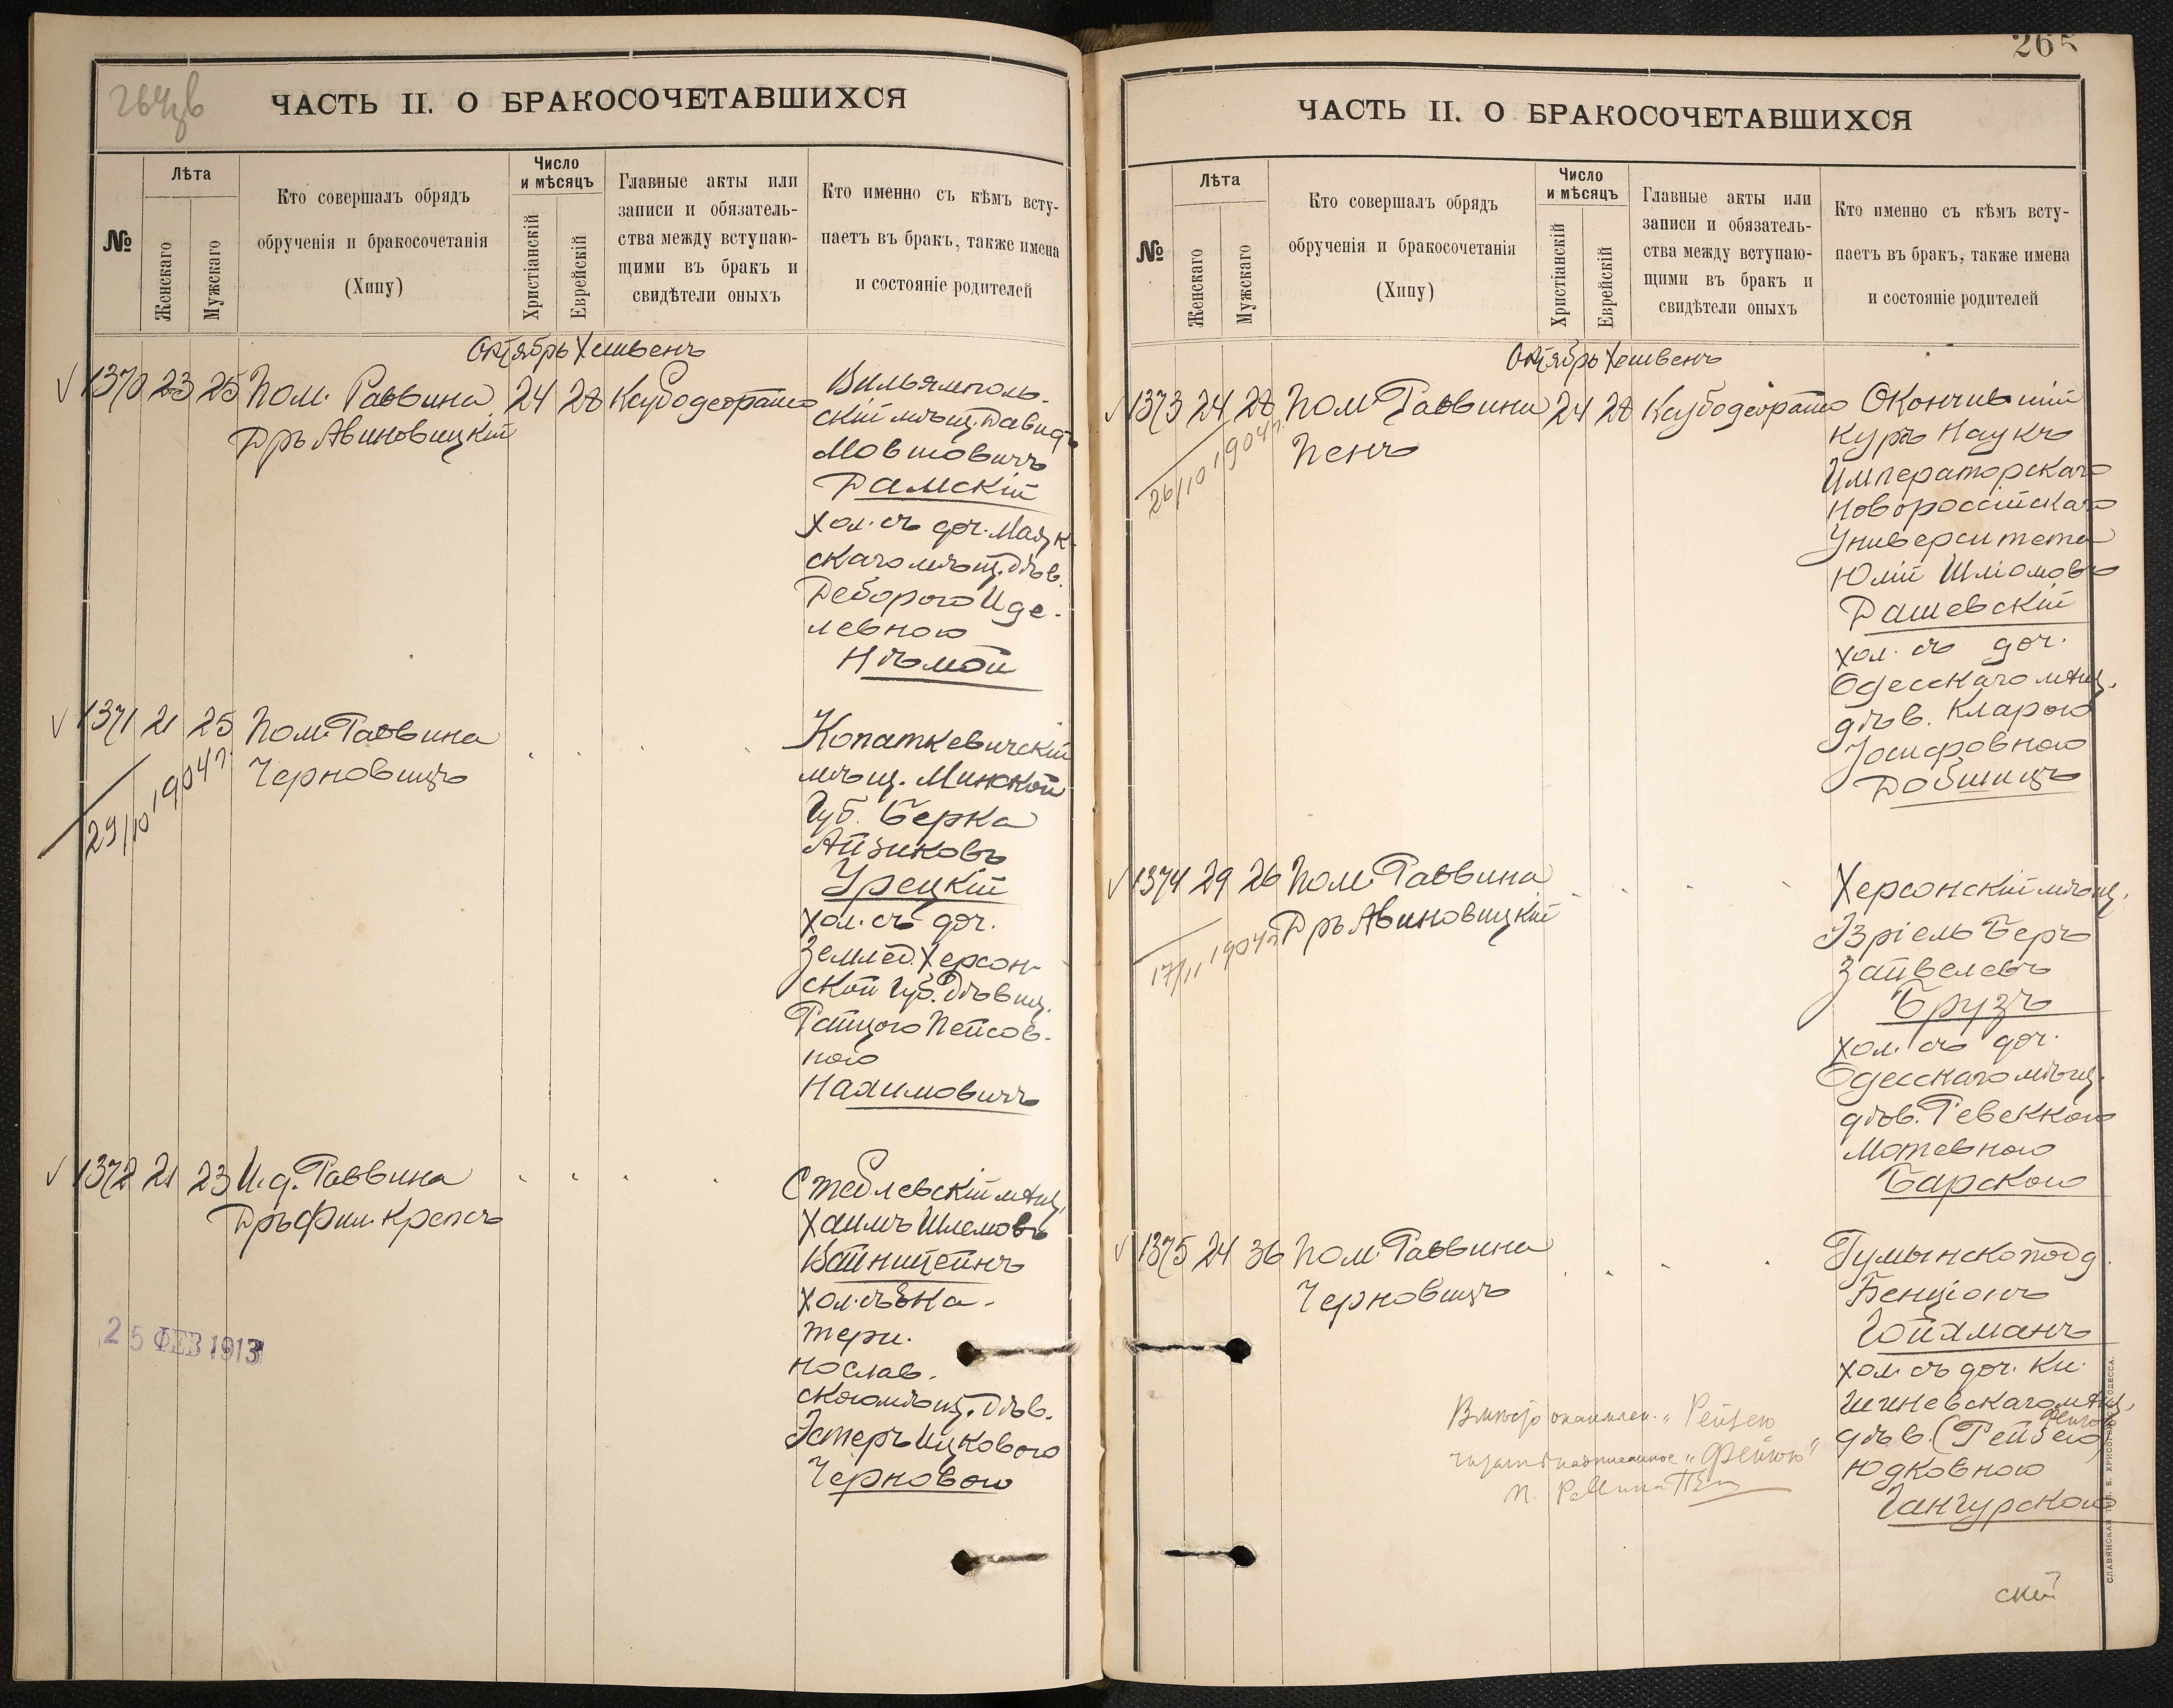 264об
ЧАСТЬ II. О БРАКОСОЧЕТАВШИХСЯ
№
Лѣта
Женскаго
Мужскаго
Кто совершалъ обрядъ
обрученія и бракосочетанія
(Хипу)
Число
и мѣсяцъ
Христіанскій
Еврейскій
Главные акты или
записи и обязатель-
ства между вступаю-
щими въ бракъ и
свидѣтели оныхъ
Кто именно съ кѣмъ всту-
паетъ въ бракъ, также имена
и состояніе родителей
Октябрь Хешвенъ
1370 23 25 Пом. Раввина 24 28
Дръ Авиновицкій
Вильямполь-
скій мѣщ. Давидъ
Мовшовичъ
Рамскій
хол. съ доч. Маяк-
скаго мѣщ. дѣв.
Деборою Иде-
левною
Нѣмой
1371 21 25 Пом. Раввина
Черновицъ
29/10 1904 г.
Копаткевичскій
мѣщ. Минской
Губ. Берка
Айзиковъ
Урецкій
хол. съ доч.
Землед. Херсон-
ской Губ. Дѣвиц.
Райцою Пейсов-
ною
Нахимовичъ
1372 21 23 И. д. Раввина
Дръ Фил. Крепсъ
Стеблевскій мѣщ.
Хаимъ Шлемовъ
Вайнштейнъ
хол. съ Ека-
терин.
нослав.
скою мѣщ. Дѣв.
Эстеръ Ицковою
Черновою
25 ФЕВ 1913
265
ЧАСТЬ II. О БРАКОСОЧЕТАВШИХСЯ
№
Лѣта
Женскаго
Мужскаго
Кто совершалъ обрядъ
обрученія и бракосочетанія
(Хипу)
Число
и мѣсяцъ
Христіанскій
Еврейскій
Главные акты или
записи и обязатель-
ства между вступаю-
щими въ бракъ и
свидѣтели оныхъ
Кто именно съ кѣмъ всту-
паетъ въ бракъ, также имена
и состояніе родителей
Октябрь Хешвенъ
1373 24 28 Пом Раввина 24 28
Пенъ
26/10 1904 г.
Окончившій
Курсъ Наукъ
Императорскаго
Новороссійскаго
Университета
Юлій Шліомовъ
Рашевскій
хол. съ доч.
Одесскаго мѣщ.
дѣв. Кларою
Іосифовною
Добшицъ
1374 29 26 Пом. Раввина
Дръ Авиновицкій
17/11 1904 г.
Херсонскій мѣщ.
Изріель Беръ
Зайвелевъ
Брузъ
хол. съ доч.
Одесскаго мѣщ.
дѣв. Ревеккою
Мотевною
Барскою
1375 24 36 Пом. Раввина
Черновицъ
Румынскопод.
Бенціонъ
Гойхманъ
хол. съ доч. Ки-
шиневскаго мѣщ.
дѣв. (Рейзею)
Фейгою
Юдковною
Гангурскою
Рейзею
СЛАВЯНСКАЯ ТИП. Е. ХРИСОГЕЛОСЪ ОДЕССА.
ской